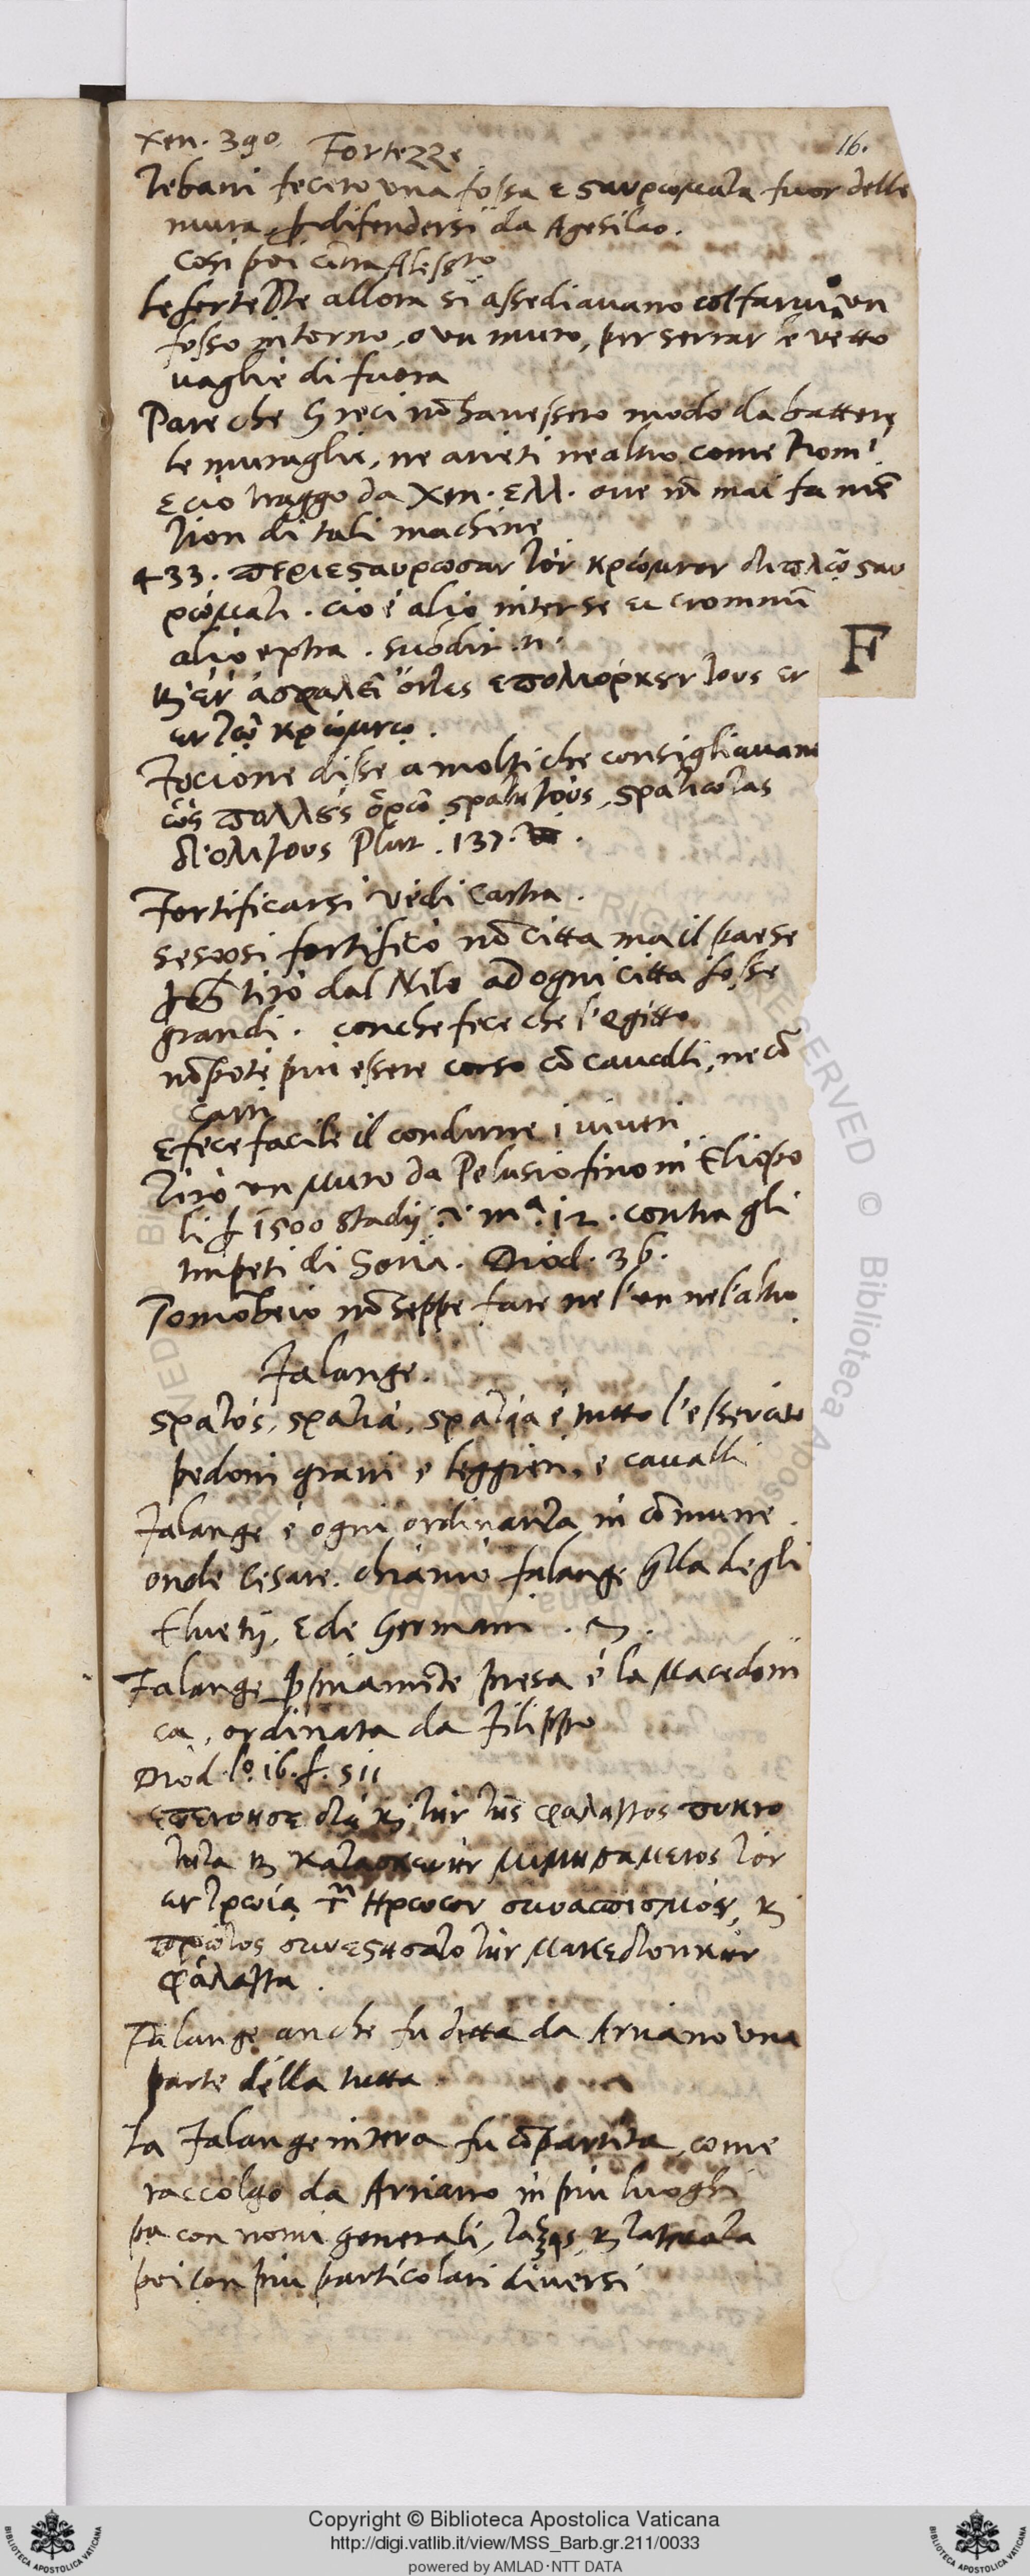 Xen. 390. Fortezze
16.
Tebani fecero una fossa e σταυρώματα fuor delle
mura p difendersi da Agesilao.
Cosi poi cōtra Alessro
Le fortezze allora si assediavano col farvi un
fosso intorno, o un muro, per serrar le vetto
vaglie di fuora
Pare che Greci nō havessero modo da battere
le muraglie, ne arieti ne altro come Rom.i
E cio traggo da Xen. ελλ. ove nō mai fa mē
tion di tali machine
433. περιεσταύρωσαν τὸν κρώμνον διπλῷ σταυ
ρώματι. cio è alio inter se et crommū
alio extra. subdit. n.
κ ἐν ἀσφαλεῖ ὄντες ἐπολιόρκουν τους εν
εν τῷ κρώμνῳ.
F
Focione disse a molti che consigliavano
ὡς πολλοὺς ὁρῶ στρατηγούς, στρατιώτας
δ' ὀλίγους Plut. 137.
Fortificarsi vedi Castra.
Sesoosi fortificò nō citta ma il paese
tirò dal Nilo ad ogni citta fosse
grandi. con che fece che l'Egitto
nō potè piu essere corso cō cavalli, ne cō
carri
E fece facile il condurre i viveri
Tirò un muro da Pelusio fino in Eliopo
li p 1500 stadij. mª. 12. contra gli
impeti di Soria. Diod. 36.
Tomobeio nō seppe fare ne l'un ne l'altro.
Falange.
στρατός, στρατιά, στρατεία è tutto l'essercito
pedoni gravi e leggieri, e cavalli
Falange è ogni ordinanza in cōmune.
onde Cesare. chiamò falange qlla degli
Elvetij, e de Germani.
Falange ppriamēte presa è la Macedoni
ca, ordinata da Filippo
Diod. lo. 16. f. 511
ἐπενόησε δὲ κ τὴν τῆς φάλαγγος πυκνό
τητα κ κατασκευὴν μιμησάμενος τὸν
εν τροίᾳ τῶν ἡρώων συνασπισμόν, κ
πρῶτος συνεστήσατο τὴν μακεδονικὴν
φάλαγγα.
Falange anche fu detta da Arriano una
parte della tutta
La Falange intera fu cōpartita, come
raccolgo da Arriano in piu luoghi
pa con nomi generali, τάξεις, κ τάγματα
poi con piu particolari diversi
Copyright © Biblioteca Apostolica Vaticana
http://digi.vatlib.it/view/MSS_Barb.gr.211/0033
powered by AMLAD·NTT DATA